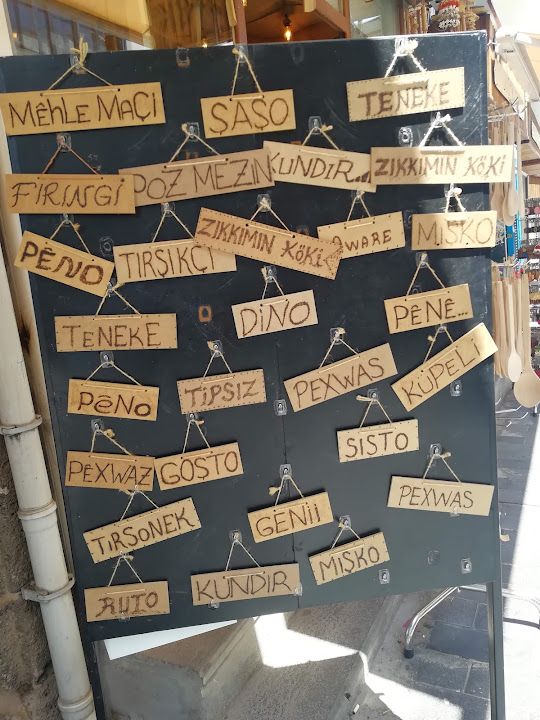 MÊHLE MAÇİ
ŞAŞO
TENEKE
FIRINGİ
POZ MEZIN
KUNDIR...
ZIKKIMIN KÖKİ
PÊNO
TIRŞIKÇİ
ZIKKIMIN KÖKİ
AWARE
MIŞKO
TENEKE
DİNO
PÊNÊ...
PÊNO
TIPSIZ
PEXWAS
KÜPELİ
PÊXWAZ
GOŞTO
SISTO
PEXWAS
TIRSONEK
GENİİ
MIŞKO
RUTO
KUNDIR